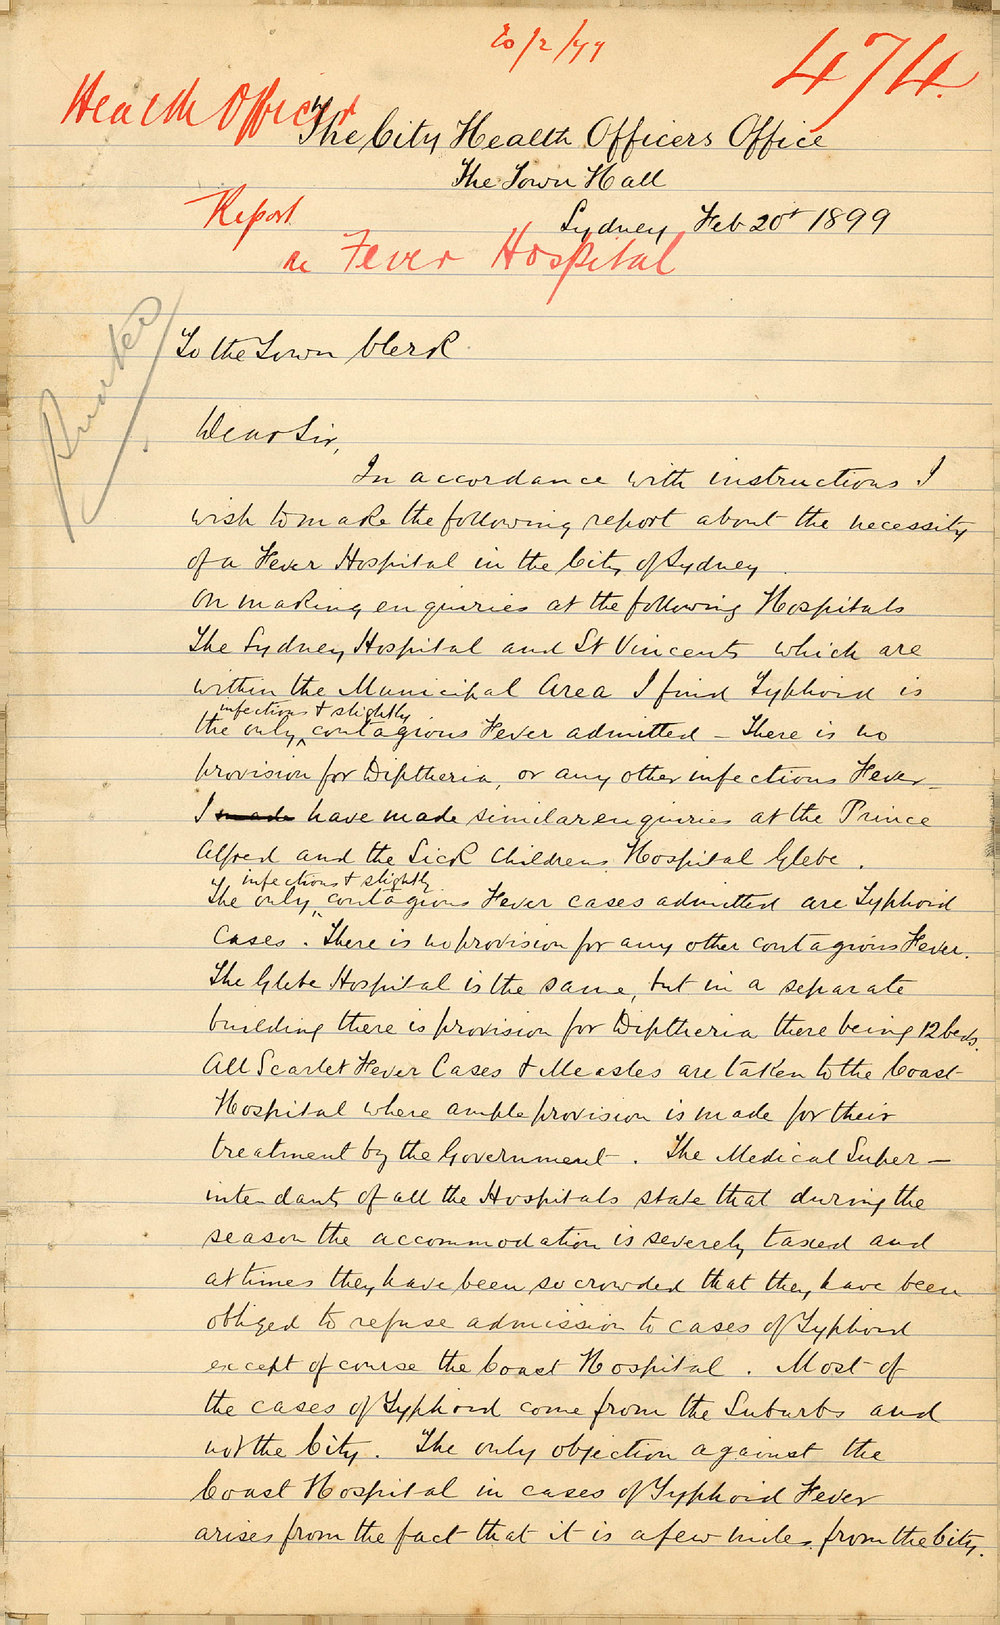 20/2/99
474
Health Officer
The City Health Officers Office
The Town Hall
Report
Sydney Feb 20th 1899
re Fever Hospital
To the Town Clerk
Dear Sir,
In accordance with instructions I
wish to make the following report about the necessity
of a Fever Hospital in the City of Sydney.
On making enquiries at the following Hospitals
The Sydney Hospital and St Vincents which are
within the Municipal Area I find Typhoid is
infectious & slightly
the only contagious Fever admitted - There is no
provision for Diptheria, or any other infectious Fever_
I made have made similar enquiries at the Prince
Alfred and the Sick Childrens Hospital Glebe.
infectious & slightly
The only contagious Fever cases admitted are Typhoid
Cases. There is no provision for any other contagious Fever.
The Glebe Hospital is the same, but in a separate
building there is provision for Diptheria there being 12 beds.
All Scarlet Fever Cases & Measles are taken to the Coast
Hospital where ample provision is made for their
treatment by the Government. The Medical Super-
intendants of all the Hospitals state that during the
season the accommodation is severely taxed and
at times they have been so crowded that they have been
obliged to refuse admission to cases of Typhoid
except of course the Coast Hospital. Most of
the cases of Typhoid come from the Suburbs and
not the City. The only objection against the
Coast Hospital in cases of Typhoid Fever
arises from the fact that it is a few miles from the City.